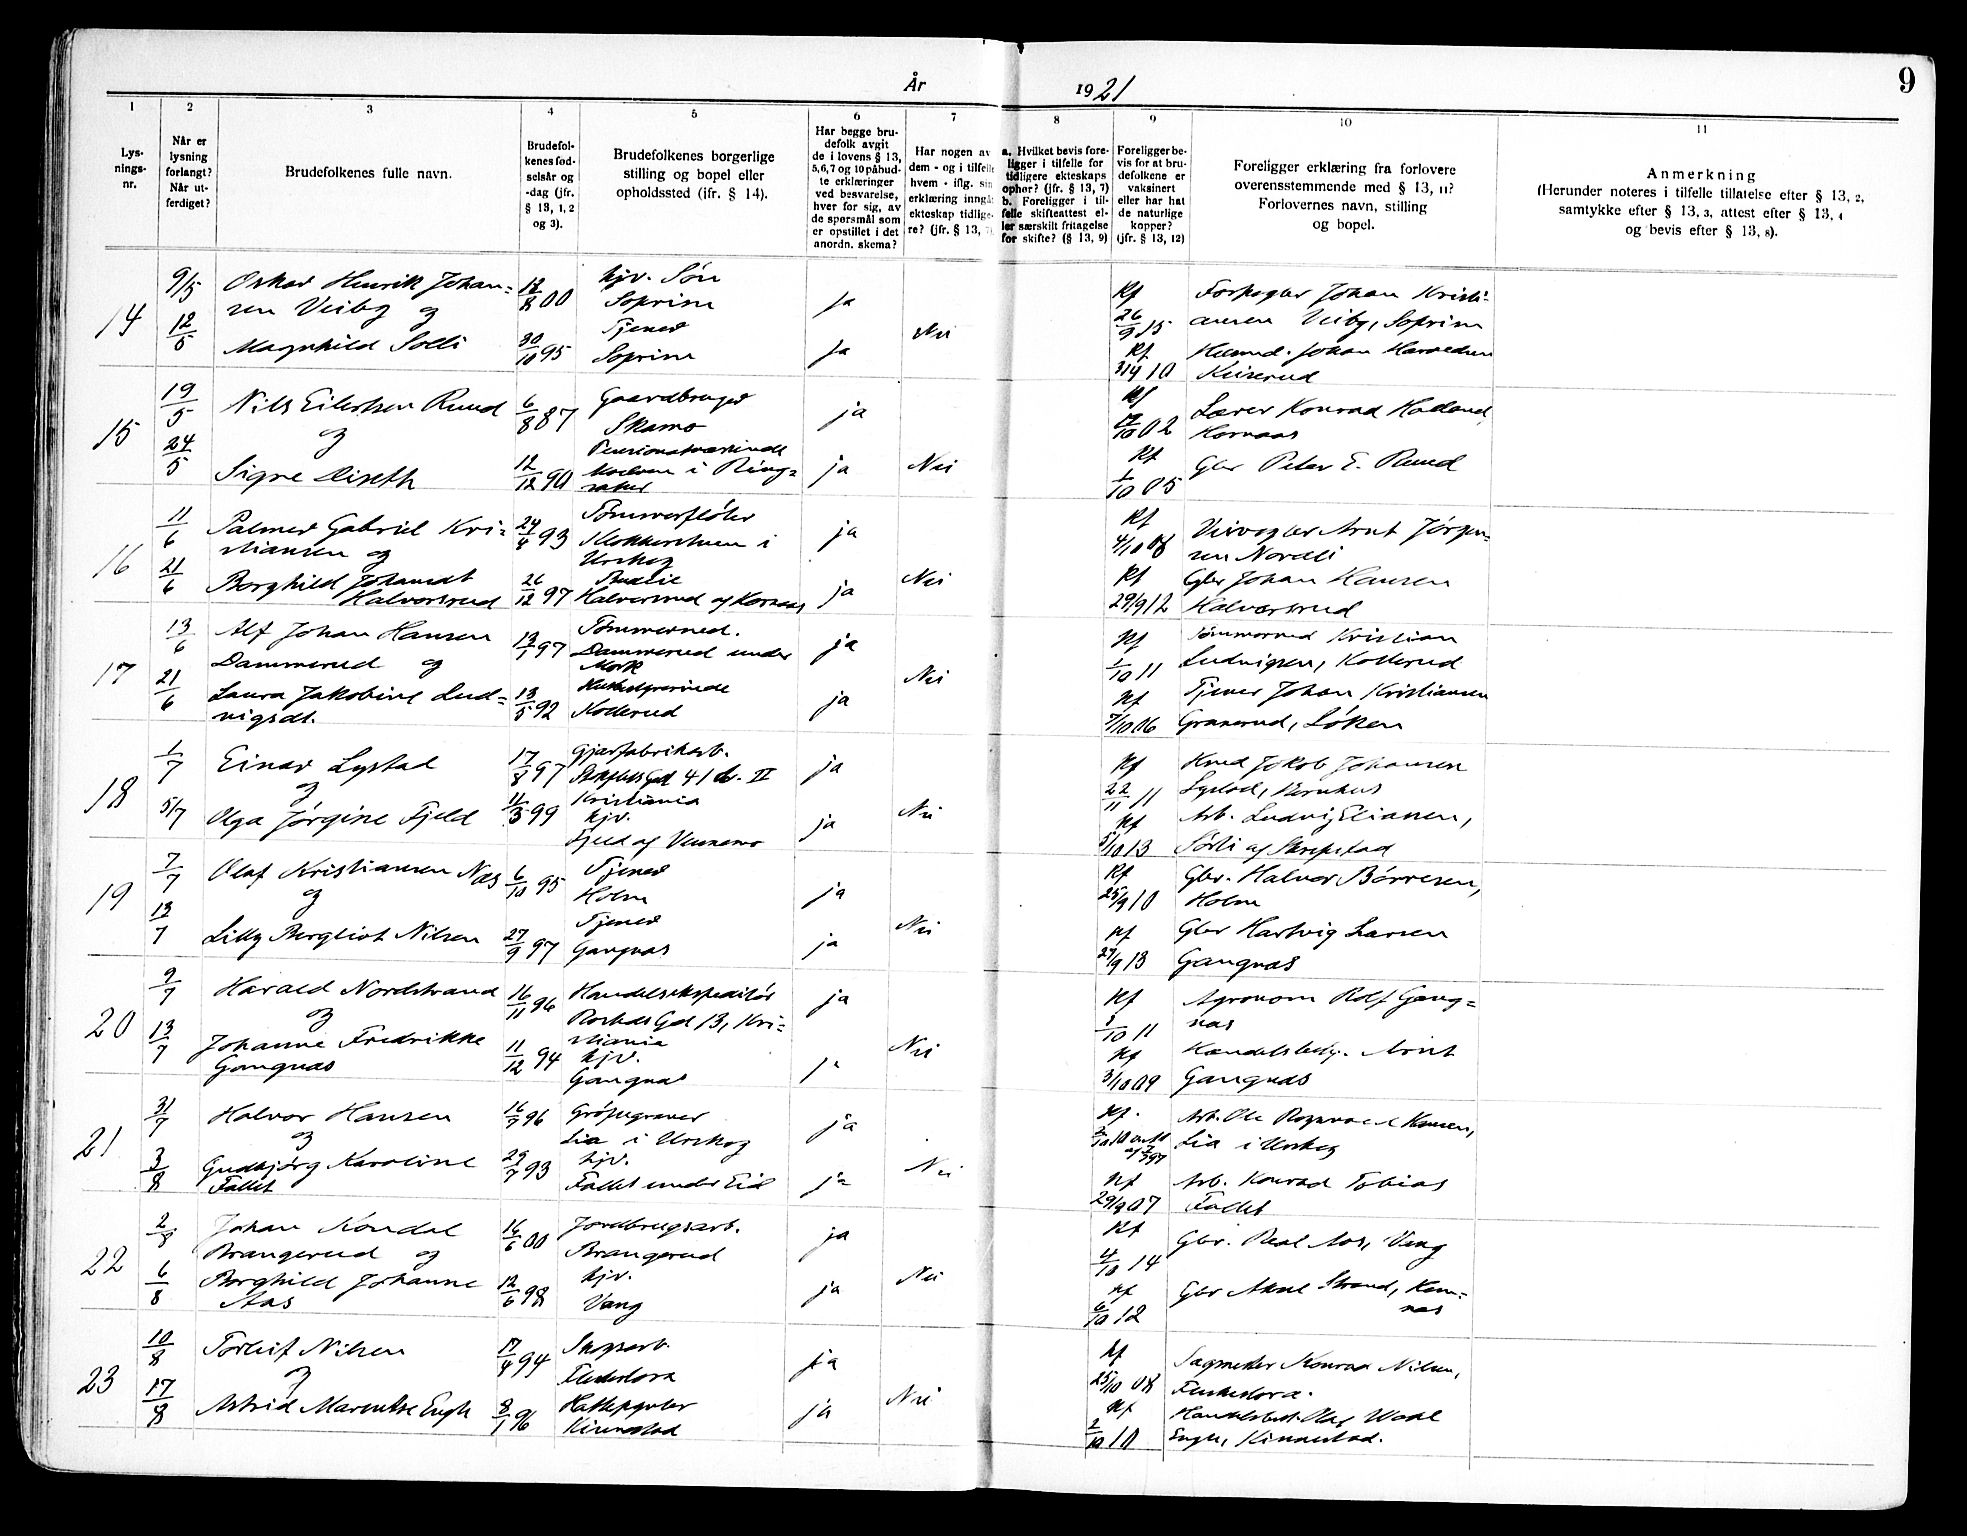 År 1921
9
1
2
3
4
5
6
7
8
9
10
11
Lys-
nings-
nr.
Når er
lysning
forlangt?
Når ut-
ferdiget?
Brudefolkenes fulle navn.
Brudefol-
kenes fød-
selsår og
-dag (jfr.
§ 13, 1, 2
og 3).
Brudefolkenes borgerlige
stilling og bopel eller
opholdssted (jfr. § 14).
Har begge bru-
defolk avgit
de i lovens § 13,
5, 6, 7 og 10 påbud-
te erklæringer
ved besvarelse,
hver for sig, av
de spørsmål som
er opstillet i det
anordn. skema?
Har nogen av
dem - og i tilfelle
hvem - iflg. sin
erklæring inngå
ekteskap tidlige-
re? (jfr. § 13, 7)
a. Hvilket bevis fore-
ligger i tilfelle for
tidligere ekteskaps
ophør? (jfr. § 13, 7)
b. Foreligger i til-
felle skifteattest el-
ler særskilt fritagelse
for skifte? (§ 13, 9)
Foreligger be-
vis for at bru-
defolkene er
vaksinert
eller har hat
de naturlige
kopper?
(jfr. § 13, 12)
Foreligger erklæring fra forlovere
overensstemmende med § 13, 11?
Forlovernes navn, stilling
og bopel.
Anmerkning
(Herunder noteres i tilfelle tillatelse efter § 13, 2,
samtykke efter § 13, 3, attest efter § 13, 4
og bevis efter § 13, 8).
14
9/5
12/5
Oskar Henrik Johan-
sen Veiby og
Magnhild Solli
/8 00
30/10 95
hjv. Søn
Soprim
Tjener
Soprim
ja
ja
Nei
Kf
26/9 15
Kf
3/4 10
Johan Kristi-
ansen Veiby, Soprim
Johan Haraldsen
15
19/5
24/5
Nils Eilertsen Ruud
og
Signe Diseth
6/8 87
12/12 90
Gaardbruger
Skamo
i Ring-
saker
ja
ja
Nei
Kf
/10 02
Kf
1/10 05
Lærer Konrad
Hornaas
Gbr Peter E. Ruud
16
11/6
21/6
Palmer Gabriel Kri-
stiansen og
Borghild Johansdt
Halvorsrud
24/8 93
26/12 97
Tømmerfløter
Klokkerstuen i
Urskog
Budeie
Halvorsrud af
ja
ja
Nei
Kf
4/10 08
Kf
29/9 12
Arnt Jørgen-
sen Nordli
Gbr Johan Hansen
Halvorsrud
17
13/6
21/6
Alf Johan Hansen
Dammerud og
Laura Jakobine Lud-
vigsdt.
13/1 97
13/5 92
Tømmermd.
Dammerud under
Mork
Kollerud
ja
ja
Nei
Kf
1/10 11
Kf
7/10 06
Tømmermd Kristian
Ludvigsen, Kollerud
Tjener Johan Kristiansen
Granerud, Løken
18
1/7
5/7
Einar Lystad
og
Olga Jørgine Fjeld
17/8 97
11/3 99
Gjærfabrikarb.
41 b. II
Kristiania
hjv.
Fjeld af
ja
ja
Nei
Kf
22/11 11
Kf
5/10 13
Jakob Johansen
Lystad,
Arb. Ludvig Eliasen,
Sørli af Skrepstad
19
7/7
13/7
Olaf Kristiansen Næs
og
Lilly Bergliot Nilsen
6/10 95
27/9 97
Tjener
Holm
Tjener
Gangnæs
ja
ja
Nei
Kf
25/9 10
Kf
27/9 13
Gbr. Halvor Børresen,
Holm
Gbr Hartvig Larsen
Gangnæs
20
9/7
13/7
Harald Nordstrand
og
Johanne Fredrikke
Gangnæs
16/11 96
11/12 94
Handelsekspeditør
Gd 13, Kri-
stiania
hjv.
Gangnæs
ja
ja
Nei
Kf
1/10 11
Kf
3/10 09
Agronom Rolf Gang-
næs
Handelsbest. Arnt
Gangnæs
21
31/7
3/8
Halvor Hansen
og
Gudbjørg Karoline
Fallet
16/7 96
29/7 93
Grøftegraver
Lia i Urskog
hjv.
Fallet under Eid
ja
ja
Nei
Kf.
Kf
29/9 07
Arb. Ole Hansen,
Lia i Urskog
Arb. Konrad Tobias
Fallet
22
2/8
6/8
Johan Kondal
Brangerud og
Borghild Johanne
Aas
16/6 00
12/6 98
Jordbrugsarb.
Brangerud
hjv.
Vang
ja
ja
Nei
Kf
4/10 14
Kf
6/10 12
Gbr. Aas, Vang
Gbr Strand, Kam-
næs
23
10/8
17/8
Torleif Nilsen
og
Astrid Marentse Engh
17/4 94
8/1 96
Sagarb.
Kinnestad
ja
ja
Nei
Kf
25/10 08
Kf
2/10 10
Sagmester Konrad Nilsen,
Handelsbest. Olaf
Engh, Kinnestad.